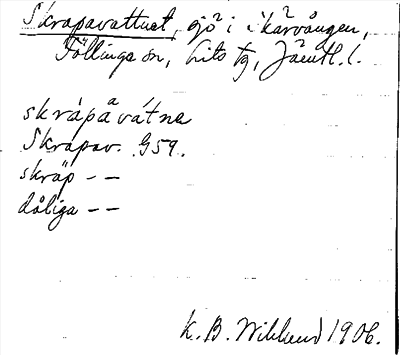 Skrapavattnet, sjö i i Kärvången,
Föllinge sn, Lits tg, Jämtl. l.
skrápåvátnə
Skrapav. G59.
skräp - -
dåliga - -
K. B. Wiklund 1906.